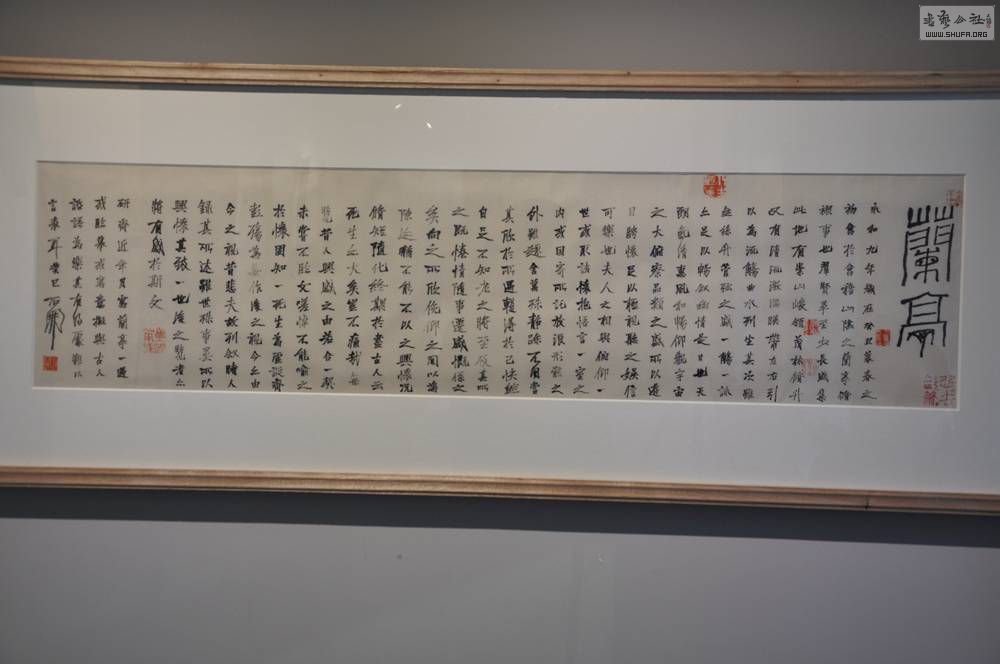 蘭亭
永和九年歲在癸丑暮春之
初會於會稽山陰之蘭亭脩
禊事也群賢畢至少長咸集
此地有崇山峻領茂林脩竹
又有清流激湍暎帶左右引
以為流觴曲水列坐其次雖
無絲竹管弦之盛一觴一詠
亦足以暢敘幽情是日也天
朗氣清惠風和暢仰觀宇宙
之大俯察品類之盛所以遊
目騁懷足以極視聽之娛信
可樂也夫人之相與俯仰一
世或取諸懷抱悟言一室之
內或因寄所託放浪形骸之
外雖趣舍萬殊靜躁不同當
其欣於所遇輒得於己快然
自足不知老之將至及其所
之既惓情隨事遷感慨係之
矣向之所欣俛仰之間以為
陳迹猶不能不以之興懷況
脩短隨化終期於盡古人云
死生亦大矣豈不痛哉每
覽昔人興感之由若合一契
未嘗不臨文嗟悼不能喻之
於懷固知一死生為虛誕齊
彭殤為妄作後之視今亦由
今之視昔悲夫故列敘時人
錄其所述雖世殊事異所以
興懷其致一也後之覽者亦
將有感於斯文
研齋近年月寫蘭亭一過
或臨摹或寫意擬與古人
為樂其有難以
言表耳癸巳
書藝公社
WWW.SHUFA.ORG